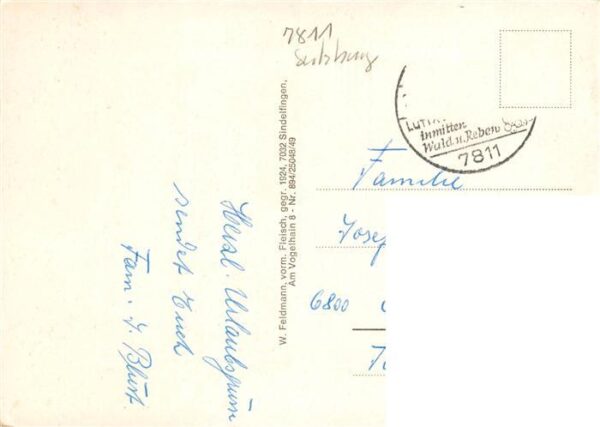 7811
Sulzburg
Inmitten
Wald u. Reben
7811
W. Feldmann, vorm. Fleisch, gegr. 1924, 7032 Sindelfingen,
Am Vogelhain 8 - Nr. 894/25048/49
Herzl. Urlaubsgrüße
sendet Euch
Fam. J.
Familie
Josep
6800